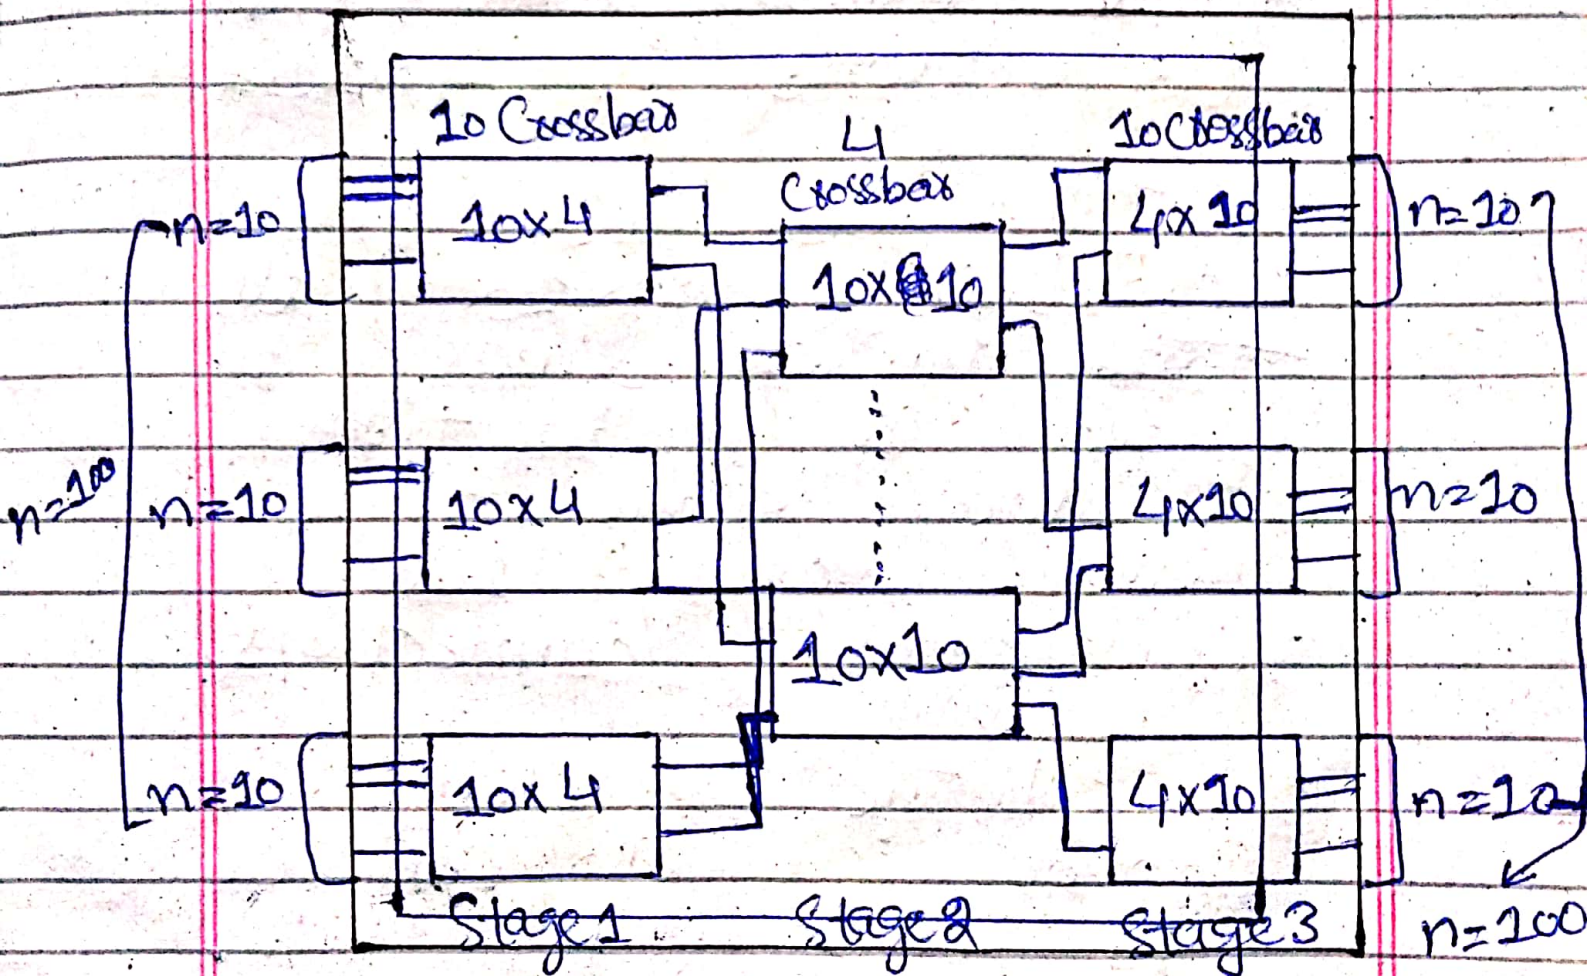 10 Crossbar
4
Crossbar
10 Crossbar
n=10
10x4
10x10
4x10
n=10
n=100
n=10
10x4
4x10
n=10
10x10
n=10
10x4
4x10
n=10
Stage 1
Stage 2
Stage 3
n=100